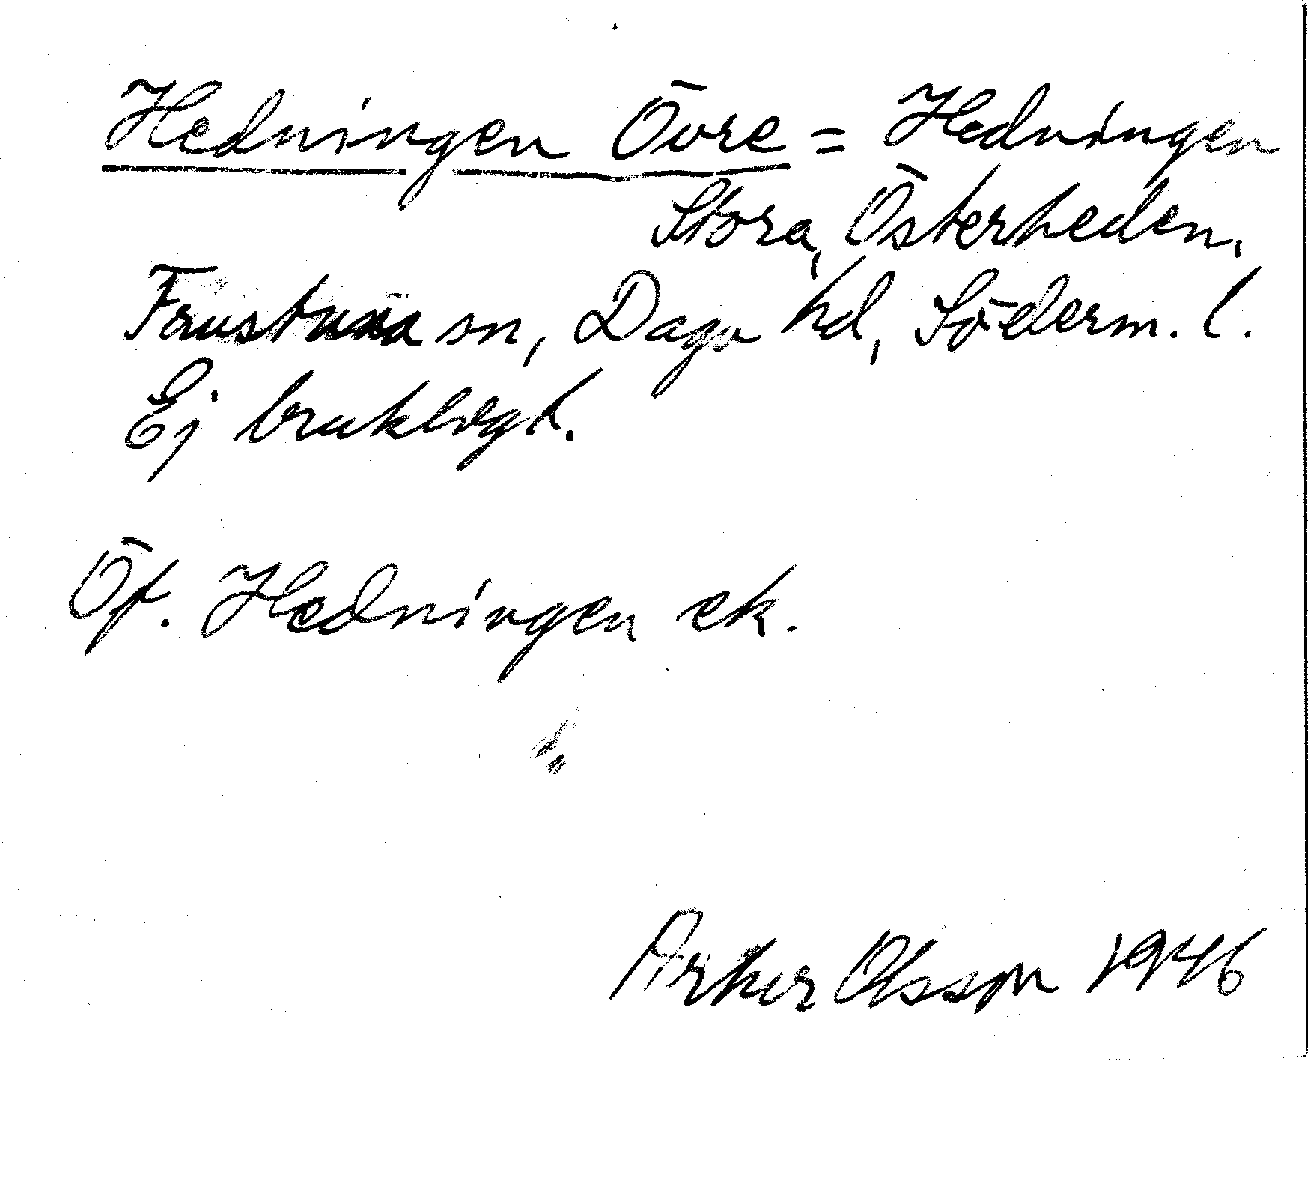 Hedningen Övre = Hedningen
Stora, Österheden,
Frustuna sn, Daga hd, Söderm. l.
Ej brukligt.
Öf. Hedningen ek.
Olsson 1946